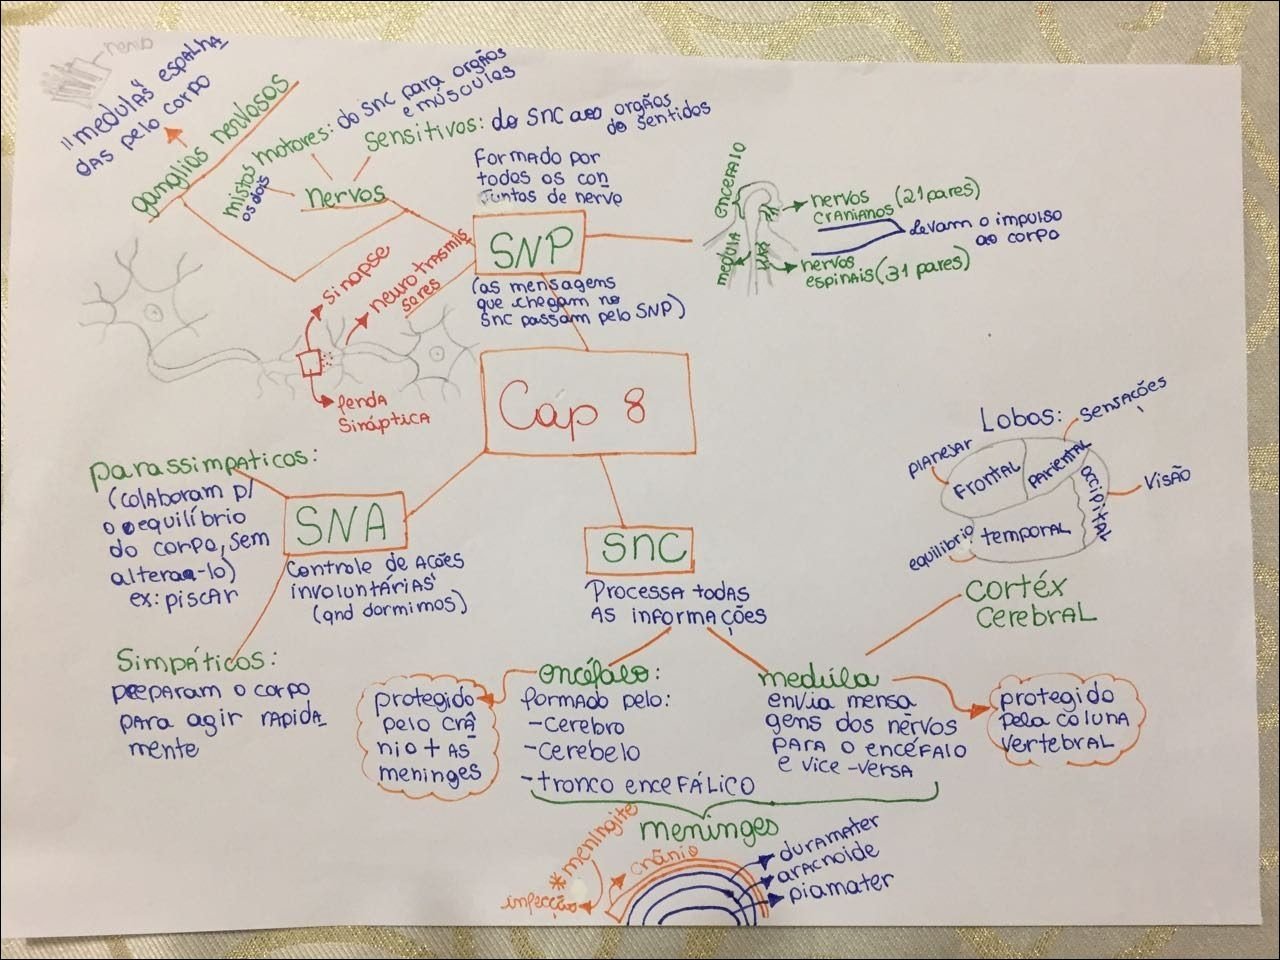 nervo
"medulas" espalha
das pelo corpo
ganglios nervosos
mistos
os dois
motores: do snc para orgãos
e músculos
sensitivos: do snc aos orgãos
do sentidos
nervos
Formado por
todos os con
juntos de nervo
SNP
(as mensagens
que chegam no
snc passam pelo SNP)
encefalo
medula
nervos
cranianos (21 pares)
levam o impulso
ao corpo
nervos
espinais (31 pares)
sinapse
neurotrasmis
sores
fenda
sináptica
Cap 8
parassimpaticos:
(colaboram p/
o equilíbrio
do corpo, sem
altera-lo)
ex: piscar
SNA
controle de ações
involuntárias
(qnd dormimos)
Simpáticos:
preparam o corpo
para agir rapida
mente
snc
Processa todas
as informações
Lobos:
sensações
planejar
frontal
pariental
occipital
visão
equilibrio
temporal
cortéx
cerebral
encéfalo:
formado pelo:
-cerebro
-cerebelo
-tronco encefálico
protegido
pelo crâ
nio + as
meninges
medúla
envia mensa
gens dos nervos
para o encéfalo
e vice-versa
protegido
pela coluna
vertebral
meninges
*meningite
infecção
crânio
duramater
aracnoide
piamater